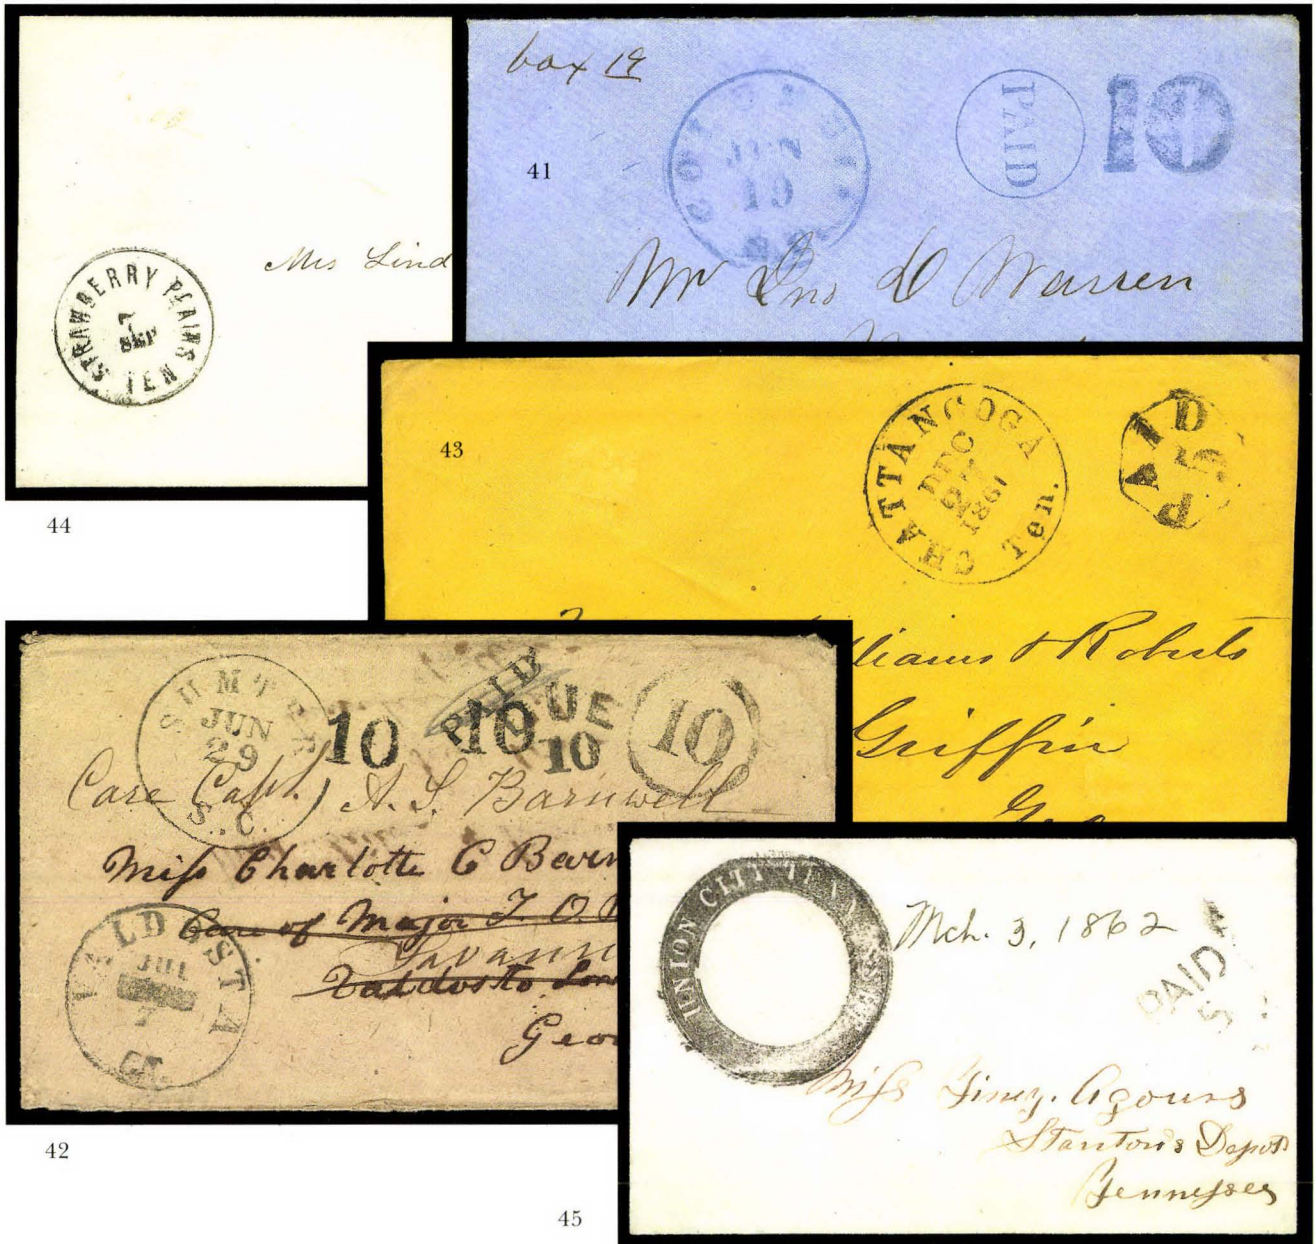 STRAWBERRY PLAINS
7
SEP
TEN
Mrs Lind
44
box 19
41
JUN
19
PAID
10
Mr Jno D Warren
43
CHATTANOOGA
DEC
1861
Ten.
PAID
5
lliams & Roberts
Griffin
SUMTER
JUN
29
S.C.
10
PAID
10
DUE
10
10
Care Capt. A. S. Barnwell
Miss Charlotte C Barn
Care of Major T. O.
Savann
Valdosta
Geor
VALDOSTA
JUL
7
GA.
42
UNION CITY TENNESSEE
Mch. 3, 1862
PAID
5
Miss
Stanton's Depot
Tennessee
45